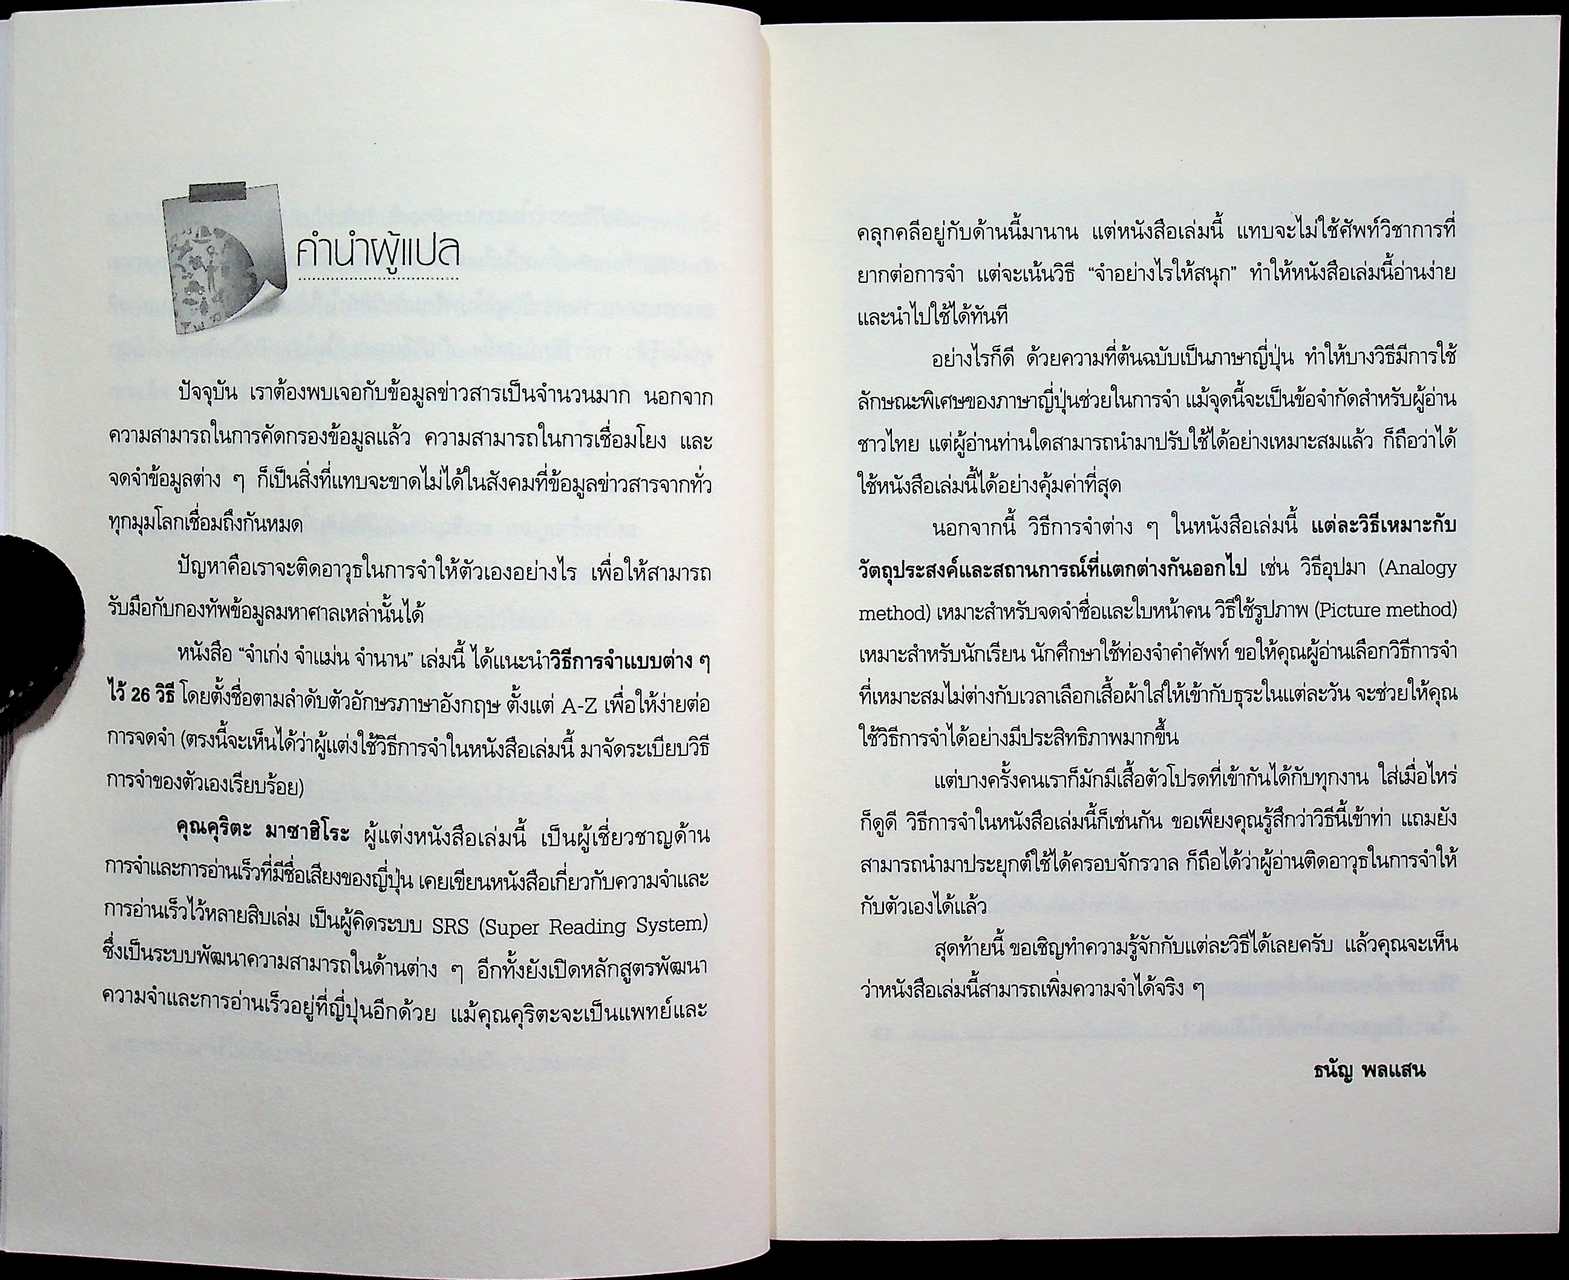 คำนำผู้แปล
ปัจจุบัน เราต้องพบเจอกับข้อมูลข่าวสารเป็นจำนวนมาก นอกจาก
ความสามารถในการคัดกรองข้อมูลแล้ว ความสามารถในการเชื่อมโยง และ
จดจำข้อมูลต่าง ๆ ก็เป็นสิ่งที่แทบจะขาดไม่ได้ในสังคมที่ข้อมูลข่าวสารจากทั่ว
ทุกมุมโลกเชื่อมถึงกันหมด
ปัญหาคือเราจะติดอาวุธในการจำให้ตัวเองอย่างไร เพื่อให้สามารถ
รับมือกับกองทัพข้อมูลมหาศาลเหล่านั้นได้
หนังสือ “จำเก่ง จำแม่น จำนาน” เล่มนี้ ได้แนะนำวิธีการจำแบบต่าง ๆ
ไว้ 26 วิธี โดยตั้งชื่อตามลำดับตัวอักษรภาษาอังกฤษ ตั้งแต่ A-Z เพื่อให้ง่ายต่อ
การจดจำ (ตรงนี้จะเห็นได้ว่าผู้แต่งใช้วิธีการจำในหนังสือเล่มนี้ มาจัดระเบียบวิธี
การจำของตัวเองเรียบร้อย)
คุณคุริตะ มาซาฮิโระ ผู้แต่งหนังสือเล่มนี้ เป็นผู้เชี่ยวชาญด้าน
การจำและการอ่านเร็วที่มีชื่อเสียงของญี่ปุ่น เคยเขียนหนังสือเกี่ยวกับความจำและ
การอ่านเร็วไว้หลายสิบเล่ม เป็นผู้คิดระบบ SRS (Super Reading System)
ซึ่งเป็นระบบพัฒนาความสามารถในด้านต่าง ๆ อีกทั้งยังเปิดหลักสูตรพัฒนา
ความจำและการอ่านเร็วอยู่ที่ญี่ปุ่นอีกด้วย แม้คุณคุริตะจะเป็นแพทย์และ
คลุกคลีอยู่กับด้านนี้มานาน แต่หนังสือเล่มนี้ แทบจะไม่ใช้ศัพท์วิชาการที่
ยากต่อการจำ แต่จะเน้นวิธี “จำอย่างไรให้สนุก” ทำให้หนังสือเล่มนี้อ่านง่าย
และนำไปใช้ได้ทันที
อย่างไรก็ดี ด้วยความที่ต้นฉบับเป็นภาษาญี่ปุ่น ทำให้บางวิธีมีการใช้
ลักษณะพิเศษของภาษาญี่ปุ่นช่วยในการจำ แม้จุดนี้จะเป็นข้อจำกัดสำหรับผู้อ่าน
ชาวไทย แต่ผู้อ่านท่านใดสามารถนำมาปรับใช้ได้อย่างเหมาะสมแล้ว ก็ถือว่าได้
ใช้หนังสือเล่มนี้ได้อย่างคุ้มค่าที่สุด
นอกจากนี้ วิธีการจำต่าง ๆ ในหนังสือเล่มนี้ แต่ละวิธีเหมาะกับ
วัตถุประสงค์และสถานการณ์ที่แตกต่างกันออกไป เช่น วิธีอุปมา (Analogy
method) เหมาะสำหรับจดจำชื่อและใบหน้าคน วิธีใช้รูปภาพ (Picture method)
เหมาะสำหรับนักเรียน นักศึกษาใช้ท่องจำคำศัพท์ ขอให้คุณผู้อ่านเลือกวิธีการจำ
ที่เหมาะสมไม่ต่างกับเวลาเลือกเสื้อผ้าใส่ให้เข้ากับธุระในแต่ละวัน จะช่วยให้คุณ
ใช้วิธีการจำได้อย่างมีประสิทธิภาพมากขึ้น
แต่บางครั้งคนเราก็มักมีเสื้อตัวโปรดที่เข้ากันได้กับทุกงาน ใส่เมื่อไหร่
ก็ดูดี วิธีการจำในหนังสือเล่มนี้ก็เช่นกัน ขอเพียงคุณรู้สึกว่าวิธีนี้เข้าท่า แถมยัง
สามารถนำมาประยุกต์ใช้ได้ครอบจักรวาล ก็ถือได้ว่าผู้อ่านติดอาวุธในการจำให้
กับตัวเองได้แล้ว
สุดท้ายนี้ ขอเชิญทำความรู้จักกับแต่ละวิธีได้เลยครับ แล้วคุณจะเห็น
ว่าหนังสือเล่มนี้สามารถเพิ่มความจำได้จริง ๆ
ธนัญ พลแสน